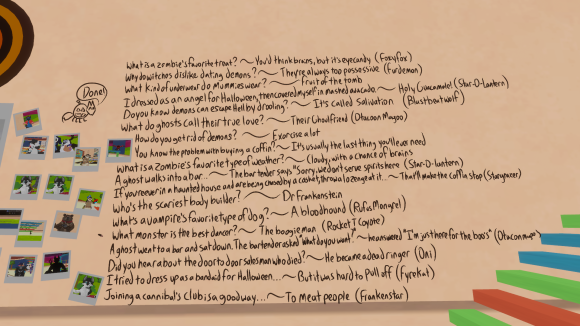 What is a zombie's favorite treat? ~ You'd think brains, but it's eyecandy (Foxyfox)
Why do witches dislike dating demons? ~ They're always too possossive (Furdemon)
What kind of underwear do Mummies wear? ~ Fruit of the tomb
Done!
I dressed as an angel for Halloween, then covered myself in mashed avacado. ~ Holy Guacamole! (Star-O-Lantern)
Do you know demons can escape Hell by drooling? ~ It's called Salivation (Blustboatwolf)
What do ghosts call their true love? ~ Their Ghoulfriend (Otacoon Magoo)
How do you get rid of demons? ~ Exorcise a lot
You know the problem with buying a coffin? ~ It's usually the last thing you'll ever need
What is a Zombie's favorite type of weather? ~ Cloudy, with a chance of brains
A ghost walks into a bar.. ~ The bartender says "Sorry, we don't serve spirits here (Star-O-lantern)
If you're ever in a haunted house and are being chased by a casket, throw a lozenge at it... ~ That'll make the coffin stop (Stargazer)
Who's the scariest body builder? ~ Dr Frankenstein
What's a vampire's favorite type of dog? ~ A bloodhound (Rufus Mongrel)
What monster is the best dancer? ~ The boogieman (Rocket T Coyote)
A ghost went to a bar and sat down. The bartender asked "What do you want?" ~ he answered "I'm just here for the boo's" (Otacoon
Did you hear about the door to door salesman who died? ~ He became a dead ringer (Oni)
I tried to dress up as a bandaid for Halloween... ~ But it was hard to Pull off (Fyrekat)
Joining a cannibal's club is a good way... ~ To meat people (Frankenstar)